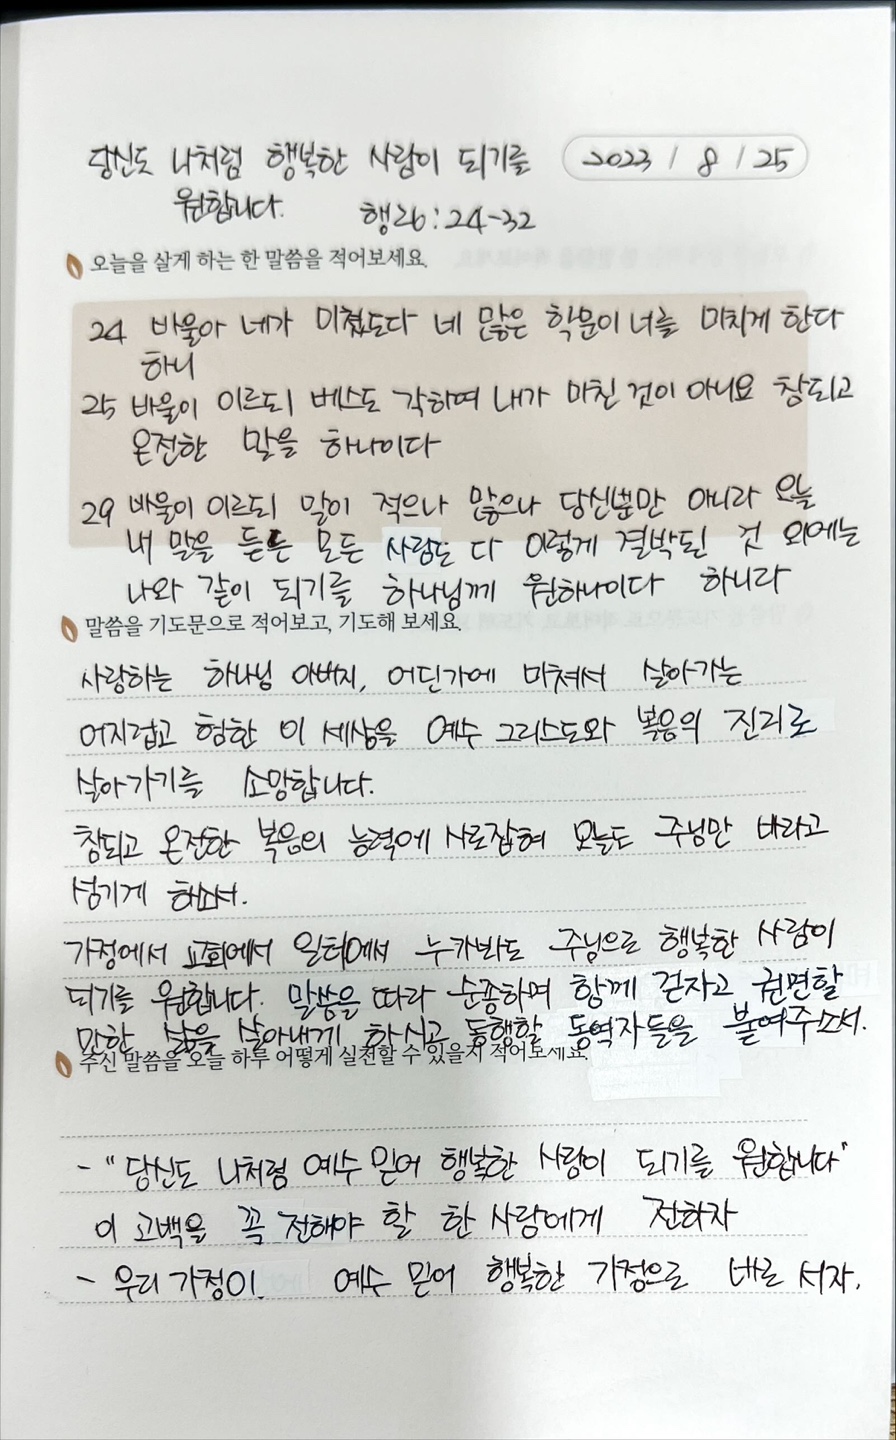 당신도 나처럼 행복한 사람이 되기를 2023 / 8 / 25
원합니다. 행26:24-32
오늘을 살게 하는 한 말씀을 적어보세요.
24 바울아 네가 미쳤도다 네 많은 학문이 너를 미치게 한다
하니
25 바울이 이르되 베스도 각하여 내가 미친 것이 아니요 참되고
온전한 말을 하나이다
29 바울이 이르되 말이 적으나 많으나 당신뿐만 아니라 오늘
내 말을 듣는 모든 사람도 다 이렇게 결박된 것 외에는
나와 같이 되기를 하나님께 원하나이다 하니라
말씀을 기도문으로 적어보고, 기도해 보세요.
사랑하는 하나님 아버지, 어딘가에 미쳐서 살아가는
어지럽고 험한 이 세상을 예수 그리스도와 복음의 진리로
살아가기를 소망합니다.
참되고 온전한 복음의 능력에 사로잡혀 오늘도 주님만 바라고
섬기게 하소서.
가정에서 교회에서 일터에서 누가봐도 주님으로 행복한 사람이
되기를 원합니다. 말씀을 따라 순종하며 함께 걷자고 권면할
만한 삶을 살아내게 하시고 동행할 동역자들을 붙여주소서.
주신 말씀을 오늘 하루 어떻게 실천할 수 있을지 적어보세요.
- "당신도 나처럼 예수 믿어 행복한 사람이 되기를 원합니다"
이 고백을 꼭 전해야 할 한 사람에게 전하자
- 우리 가정이 예수 믿어 행복한 가정으로 바로 서자.